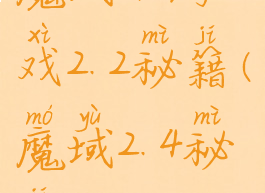 xì mì jí
戏2.2秘籍(
mó yù mì
魔域2.4秘